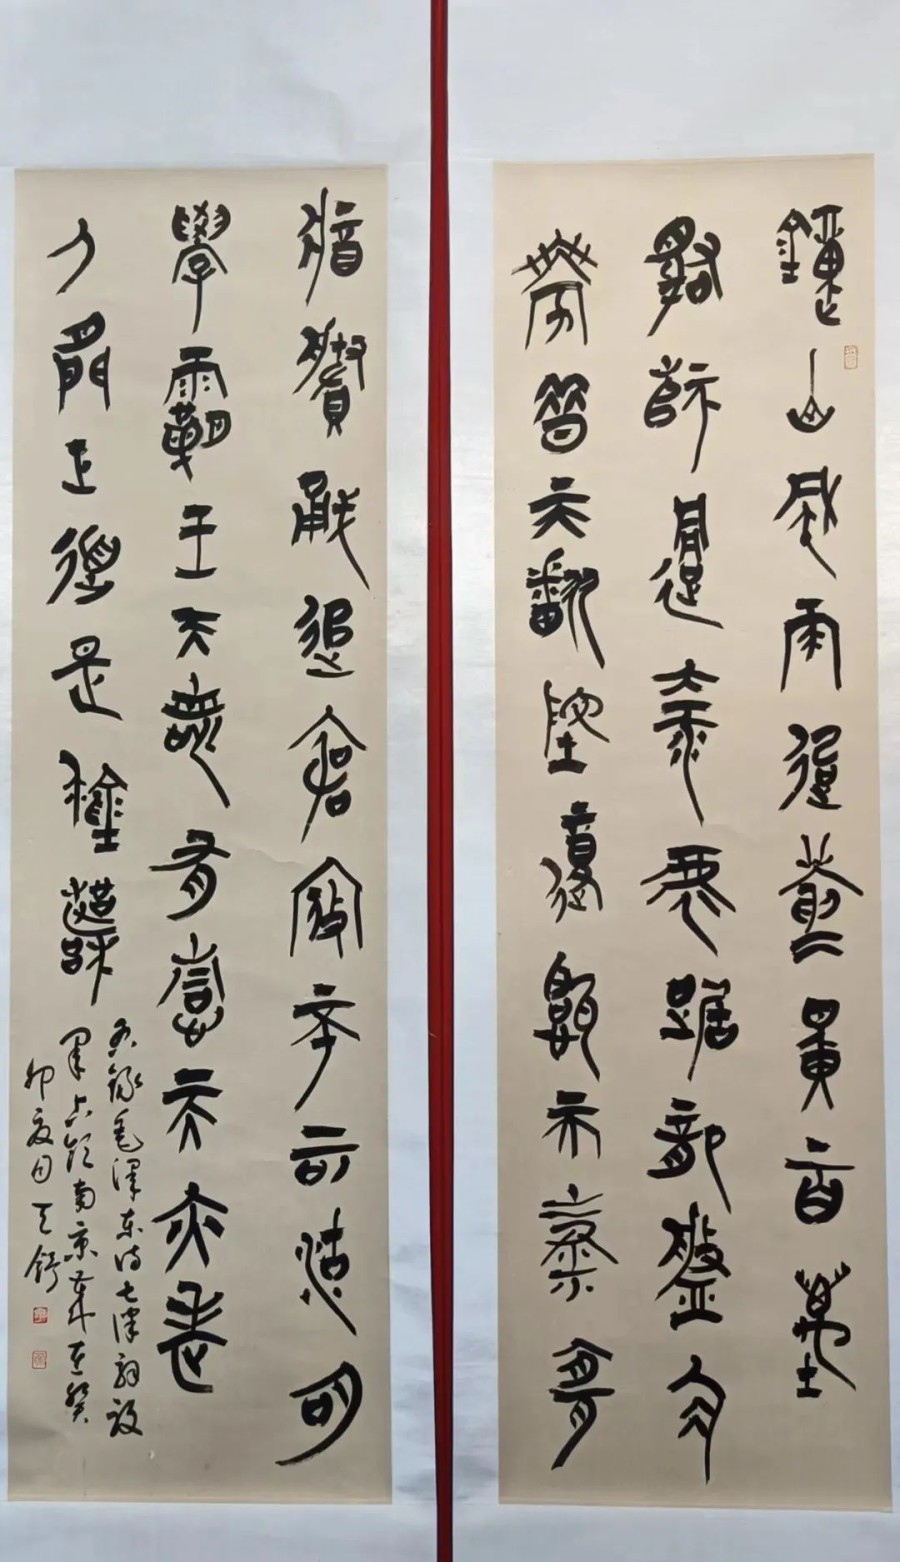 鍾山風雨起蒼黃百萬
雄師過大江虎踞龍盤今
勝昔天翻地覆慨而慷宜
將賸勇追窮寇不可沽名
學霸王天若有情天亦老
人間正道是滄桑
右錄毛澤東詩七律解放
軍占領南京歲在癸
卯夏